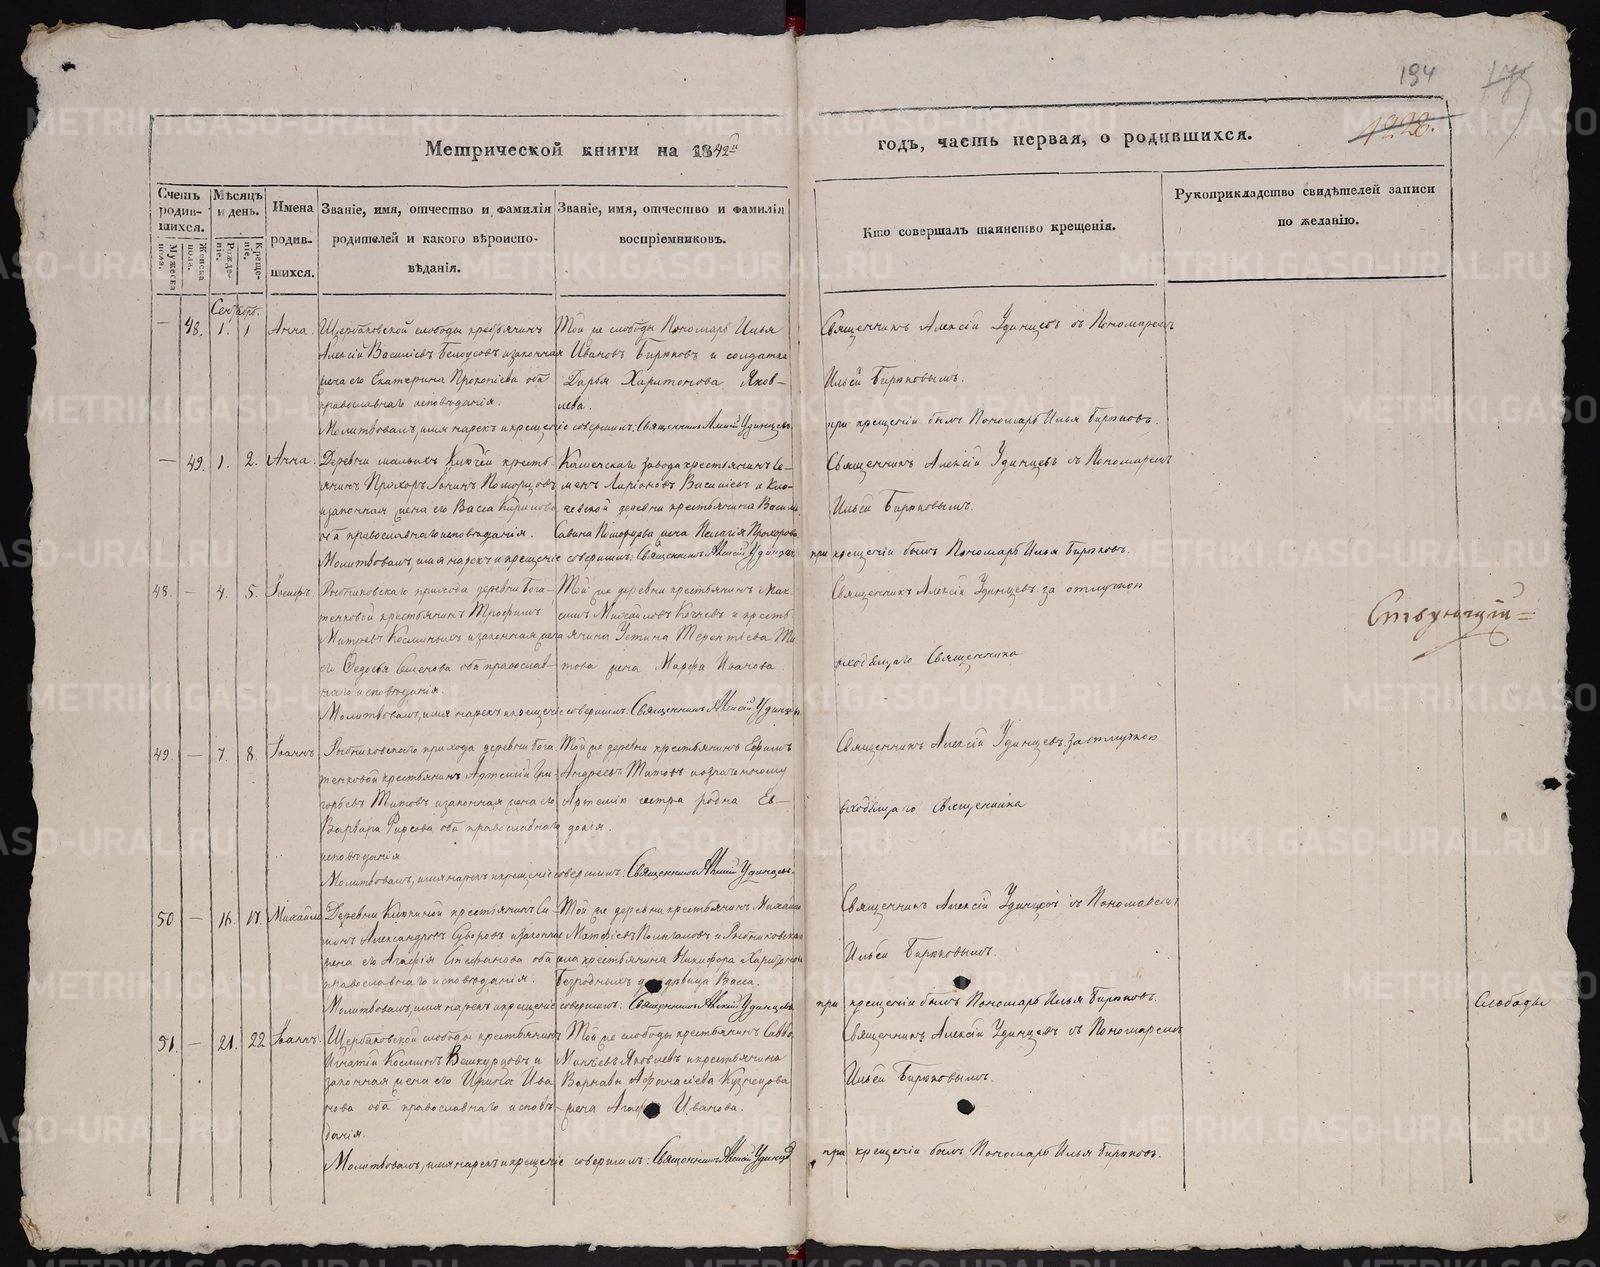 194
1228.
Метрической книги на 1842й
годъ, часть первая, о родившихся.
Счетъ родившихся.
Мужеска пола.
Женска пола.
Мѣсяцъ и день.
Рожденіе.
Крещеніе.
Имена родившихся.
Званіе, имя, отчество и фамилія родителей и какого вѣроисповѣданія.
Званіе, имя, отчество и фамилія воспріемниковъ.
Кто совершалъ таинство крещенія.
Рукоприкладство свидѣтелей записи по желанію.
Сентябрь.
— 48. 1. 1 Анна.
Щербаковской слободы крестьянинъ
Алексій Василіевъ Белоусовъ и законная
жена его Екатерина Прокопіева оба
православнаго исповѣданія.
Той же слободы Пономарь Илья
Ивановъ Бирюковъ и солдатка
Дарья Харитонова Яков-
лева.
Молитвовалъ, имя нарекъ и крещеніе совершилъ: Священникъ Алексій Удинцевъ.
Священникъ Алексій Удинцевъ съ Пономаремъ
Ильей Бирюковымъ.
при крещеніи былъ Пономарь Илья Бирюковъ.
— 49. 1. 2. Анна.
Деревни малыхъ Ключей кресть-
янинъ Прохоръ
законная жена его Васса Кирилова
оба православнаго исповѣданія.
Каменскаго завода крестьянинъ Се-
менъ Ларіоновъ Василіевъ и Клю-
чевской деревни крестьянина Васил
Савина жена Пелагія Прохорова
Молитвовалъ, имя нарекъ и крещеніе совершилъ: Священникъ Алексій Удинцевъ.
Священникъ Алексій Удинцевъ съ Пономаремъ
Ильей Бирюковымъ.
при крещеніи былъ Пономарь Илья Бирюковъ.
48. — 4. 5. Іосифъ.
Рыбниковскаго прихода деревни Бога-
тенковой крестьянинъ Трофимъ
и законная жена
его Федосья Семенова оба православ-
наго исповѣданія.
Той же деревни крестьянинъ Мак-
симъ Михайловъ и кресть-
янина Устина Терентьева Ти-
това жена Марфа Иванова
Молитвовалъ, имя нарекъ и крещеніе совершилъ: Священникъ Алексій Удинцевъ
Священникъ Алексій Удинцевъ. за отлучкою
Священника
49. — 7. 8. Іоаннъ.
Рыбниковскаго прихода деревни Бога-
тенковой крестьянинъ Артемій Гри-
горьевъ Титовъ и законная жена его
Варвара Фирсова оба православнаго
исповѣданія
Той же деревни крестьянинъ Ефимъ
Андреевъ Титовъ и означенному
Артемію сестра родна Ев-
докія.
Молитвовалъ, имя нарекъ и крещеніе совершилъ: Священникъ Алексій Удинцевъ.
Священникъ Алексій Удинцевъ. за отлучкою
Священника
50 — 16. 17. Михаилъ
Деревни Кишкиной крестьянинъ Си-
монъ Александровъ Суворовъ и законная
жена его Агафія Стефанова оба
православнаго исповѣданія.
Той же деревни крестьянинъ Михаилъ
и Рыбниковскаго
села крестьянина Никифора Харитонов
Безродныхъ дѣвица Васса.
Молитвовалъ, имя нарекъ и крещеніе совершилъ: Священникъ Алексій Удинцевъ
Священникъ Алексій Удинцевъ съ Пономаремъ
Ильей Бирюковымъ.
при крещеніи былъ Пономарь Илья Бирюковъ.
51. — 21. 22 Іоаннъ.
Щербаковской слободы крестьянинъ
Игнатій Косминъ Вешкурцовъ и
законная жена его Ирина Ива-
нова оба православнаго исповѣ-
данія.
Той же слободы крестьянинъ Савва
Яковлевъ и крестьянина
Варнавы Афанасіева Кузнецова
жена Иванова.
Молитвовалъ, имя нарекъ и крещеніе совершилъ: Священникъ Алексій Удинцевъ
Священникъ Алексій Удинцевъ съ Пономаремъ
Ильей Бирюковымъ.
при крещеніи былъ Пономарь Илья Бирюковъ.
Слободы
METRIKI.GASO-URAL.RU